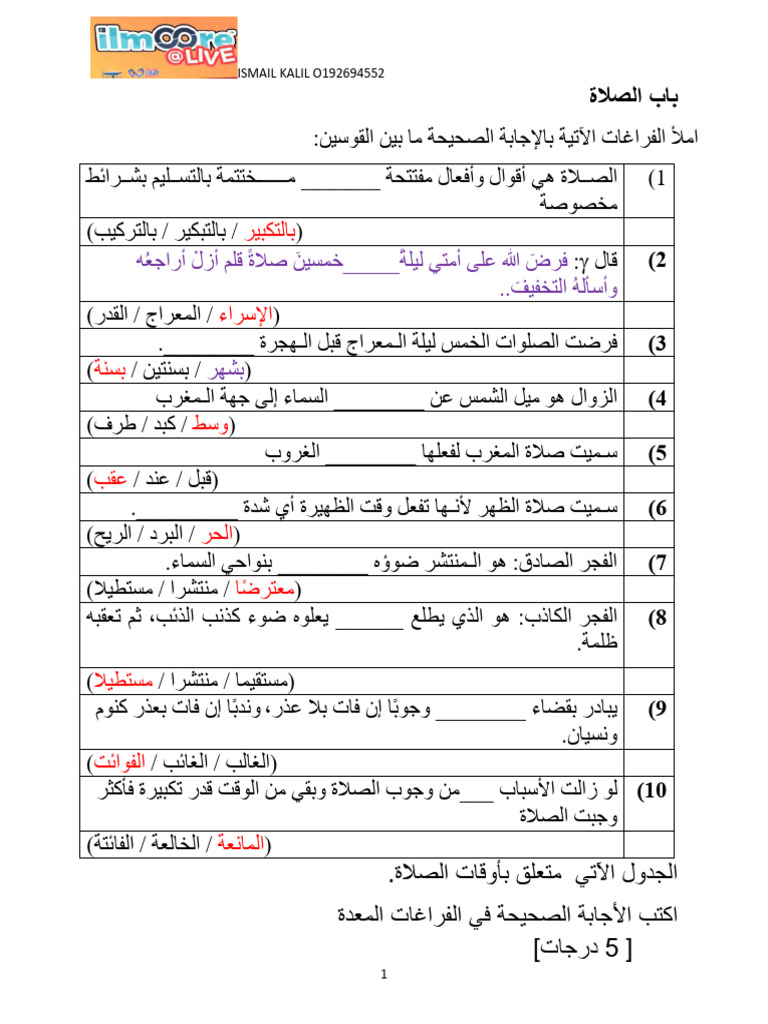 ilmOOre
@LIVE
ISMAIL KALIL O192694552
باب الصلاة
املأ الفراغات الآتية بالإجابة الصحيحة ما بين القوسين:
1) الصـلاة هي أقوال وأفعال مفتتحة _______ مـــختتمة بالتسـليم بشـرائط
مخصوصة
(بالتكبير / بالتبكير / بالتركيب)
2) قال γ: فرضَ الله على أمتي ليلةَ_____خمسينَ صلاةً قلم أزلْ أراجعُه
وأسألهُ التخفيفَ..
(الإسراء / المعراج / القدر)
3) فرضت الصلوات الخمس ليلة الـمعراج قبل الـهجرة ________.
(بشهر / بسنتين / بسنة)
4) الزوال هو ميل الشمس عن ________ السماء إلى جهة الـمغرب
(وسط / كبد / طرف)
5) سـميت صلاة المغرب لفعلها ________ الغروب
(قبل / عند / عقب)
6) سـميت صلاة الظهر لأنـها تفعل وقت الظهيرة أي شدة _________.
(الحر / البرد / الريح)
7) الفجر الصادق: هو الـمنتشر ضوؤه ________ بنواحي السماء.
(معترضًا / منتشرا / مستطيلا)
8) الفجر الكاذب: هو الذي يطلع ______ يعلوه ضوء كذنب الذئب، ثم تعقبه
ظلمة.
(مستقيما / منتشرا / مستطيلا)
9) يبادر بقضاء ________ وجوبًا إن فات بلا عذر، وندبًا إن فات بعذر كنوم
ونسيان.
(الغالب / الغائب / الفوائت)
10) لو زالت الأسباب ___من وجوب الصلاة وبقي من الوقت قدر تكبيرة فأكثر
وجبت الصلاة
(المانعة / الخالعة / الفائتة)
الجدول الآتي متعلق بأوقات الصلاة.
اكتب الأجابة الصحيحة في الفراغات المعدة
[ 5 درجات]
1